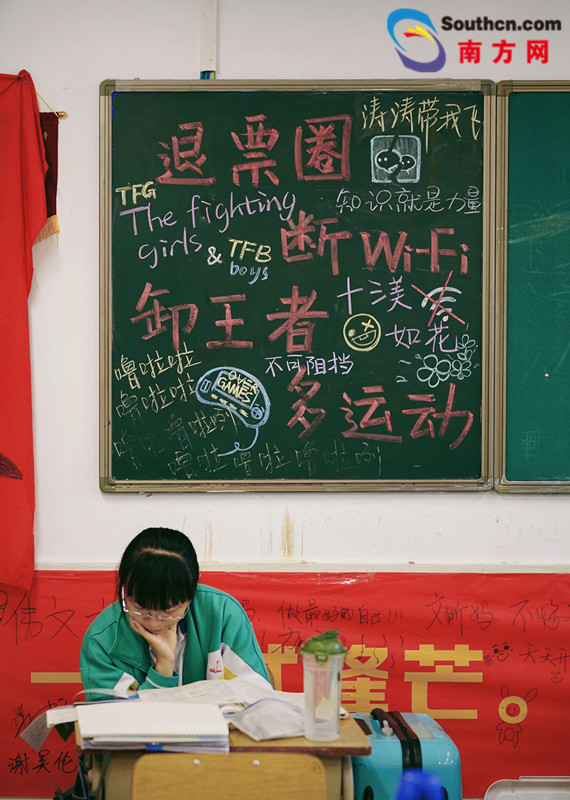 Southcn.com
南方网
涛涛带我飞
退票圈
知识就是力量
TFG
The fighting
girls
& TFB
boys
断Wi-Fi
卸王者
十渼
如花
噜啦啦
噜啦啦
OVER
GAMES
不可阻挡
多运动
噜啦噜啦咧
噜啦噜啦噜啦咧
伟文
做最好的自己!!!
天天开
一
锋芒。
谢昊伦